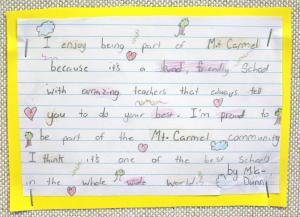 I enjoy being part of Mt Carmel
because it's a kind, friendly School
with amazing teachers that always tell
you to do your best. I'm proud to
be part of the Mt. Carmel community
I think it's one of the best Schools
in the whole wide world. by Mila
Dunn